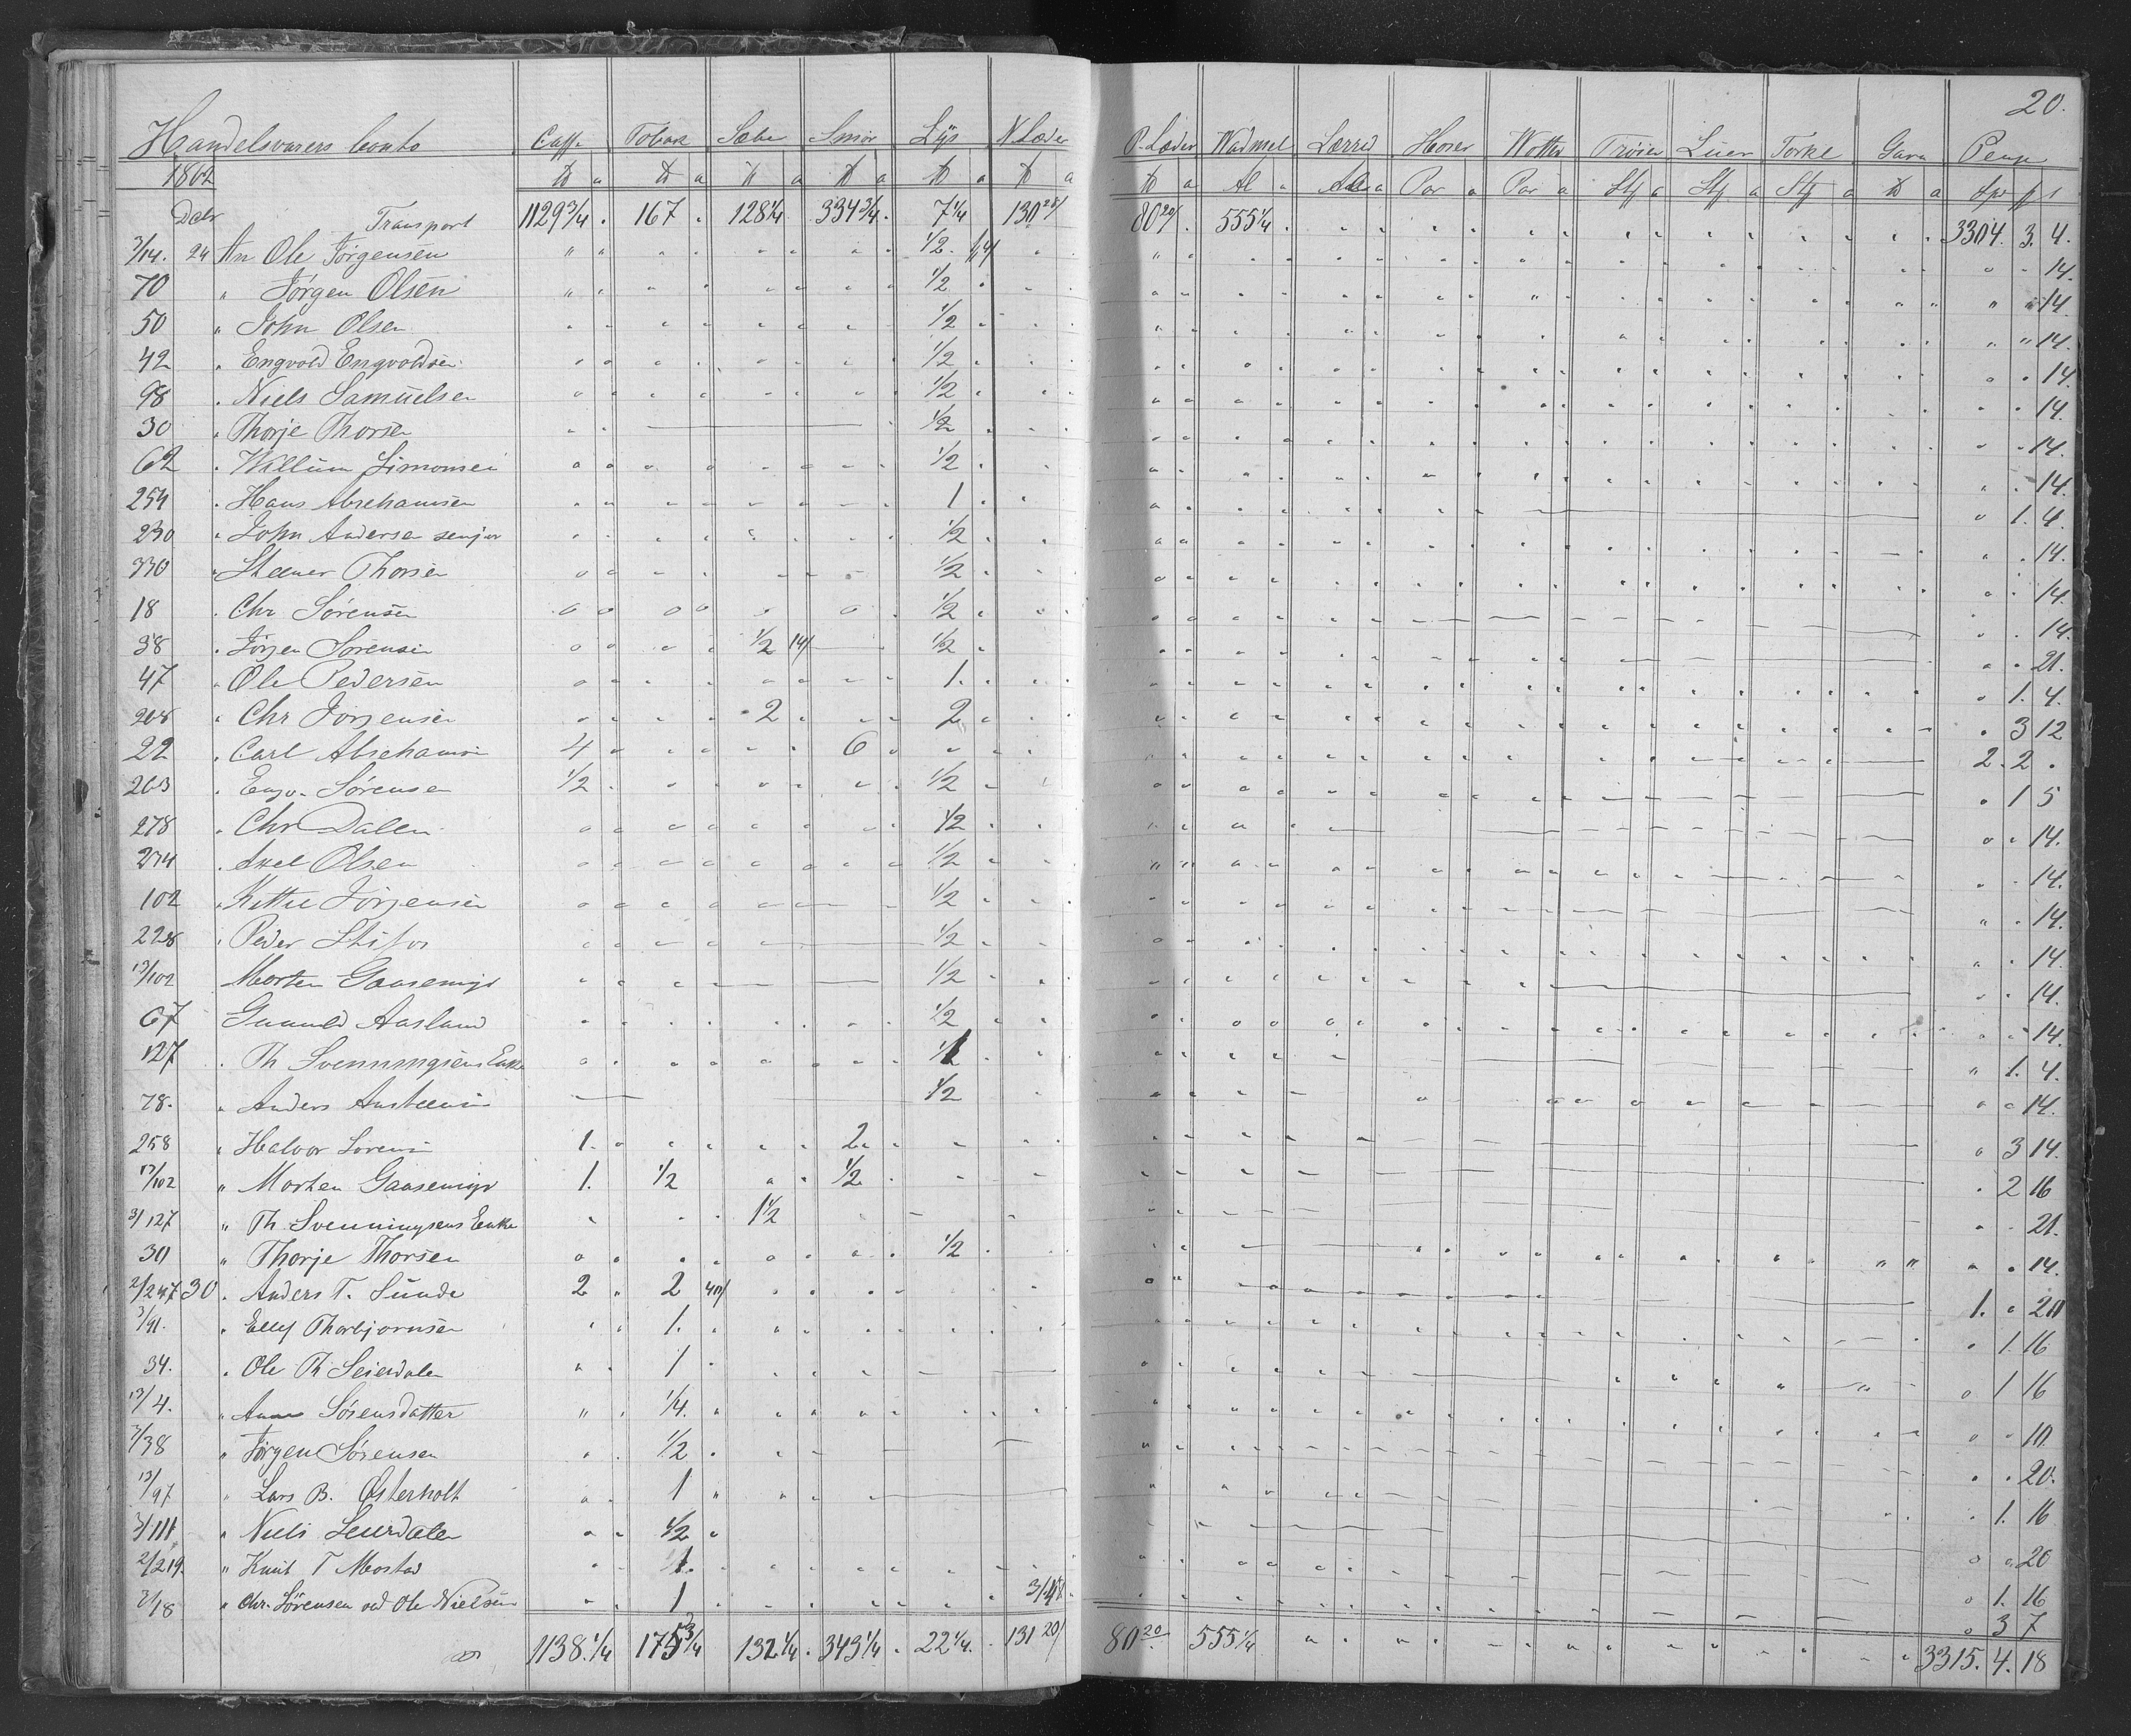 20.
Handelsvarers Conto Caffe Tobak Sæbe Smør Lys N. Læder P. Læder Wadmel Lærred Hoser Wotter Trøier Luer Tørkl Garn Penge
1862 ℔ a ℔ a ℔ a ℔ a ℔ a ℔ a ℔ a Al a Al a Par a Par a Stk a Stk a Stk a ℔ a Spd ß
Dcbr Transport 1129 3/4 167 128 1/4 334 3/4 7 1/4 130 80 20/ 555 1/4 3304. 3. 4.
3/14. 24 An Ole Jørgensen 1/2 14/ 14.
70 " Jørgen Olsen 1/2 14.
50 " John Olsen 1/2 14.
42 " Engvold Engvoldsen 1/2 14.
98 " Niels Samuelsen 1/2 14.
30 " Thorje Thorsen 1/2 14.
62 " Willum Simonsen 1/2 14.
254 " Hans Abrehamsen 1 1. 4.
230 " John Andersen senjor 1/2 14.
330 " Steener Thorsen 1/2 14.
18 " Chr Sørensen 1/2 14.
38 " Jørgen Sørensen 1/2 14/ 1/2 21.
47 " Ole Pedersen 1. 1. 4.
208 " Chr Jørgensen 2 2 3 12
22 " Carl Abrehamsen 4 6 2. 2
203 " Engv. Sørensen 1/2 1/2 1 5
278 " Chr Dalen 1/2 14.
274 " Axel Olsen 1/2 14.
102 " Kittil Jørgensen 1/2 14.
228 " Peder 1/2 14.
13/102 Morten Gaasemyr 1/2 14.
67 Gunuld Aasland 1/2 14.
127 " Th Svenningsens Enke 1 1. 4.
78. " Anders Austeensen 1/2 14.
258 " Halvor Sørensen 1. 2 3 14.
13/102 " Morten Gaasemyr 1. 1/2 1/2 2 16
3/127 " Th Svenningsens Enke 1 1/2 21.
30 " Thorje Thorsen 1/2 14.
2/247 30 " Anders T. Sunde 2 2 40/ 1. 20
3/91. " Ellef Thorbjørnsen 1. 1. 16
34. " Ole Th Seierdalen 1 1 16
13/4. " Anne Sørensdatter 1/4. 10
3/38 " Jørgen Sørensen 1/2 20.
13/97 " Lars B. Østerholt 1 1. 16
3/111 " Niels Leurdalen 1/2 20
2/219. " Knut T Mostad 1. 1. 16
3/18 " Chr. Sørensen ved Ole Nielsen 1 3/4 3 7
1138. 1/4 175 3/4 132 1/4 343 1/4 22 1/4. 131 20/ 80 20 555 1/4 3315. 4. 18